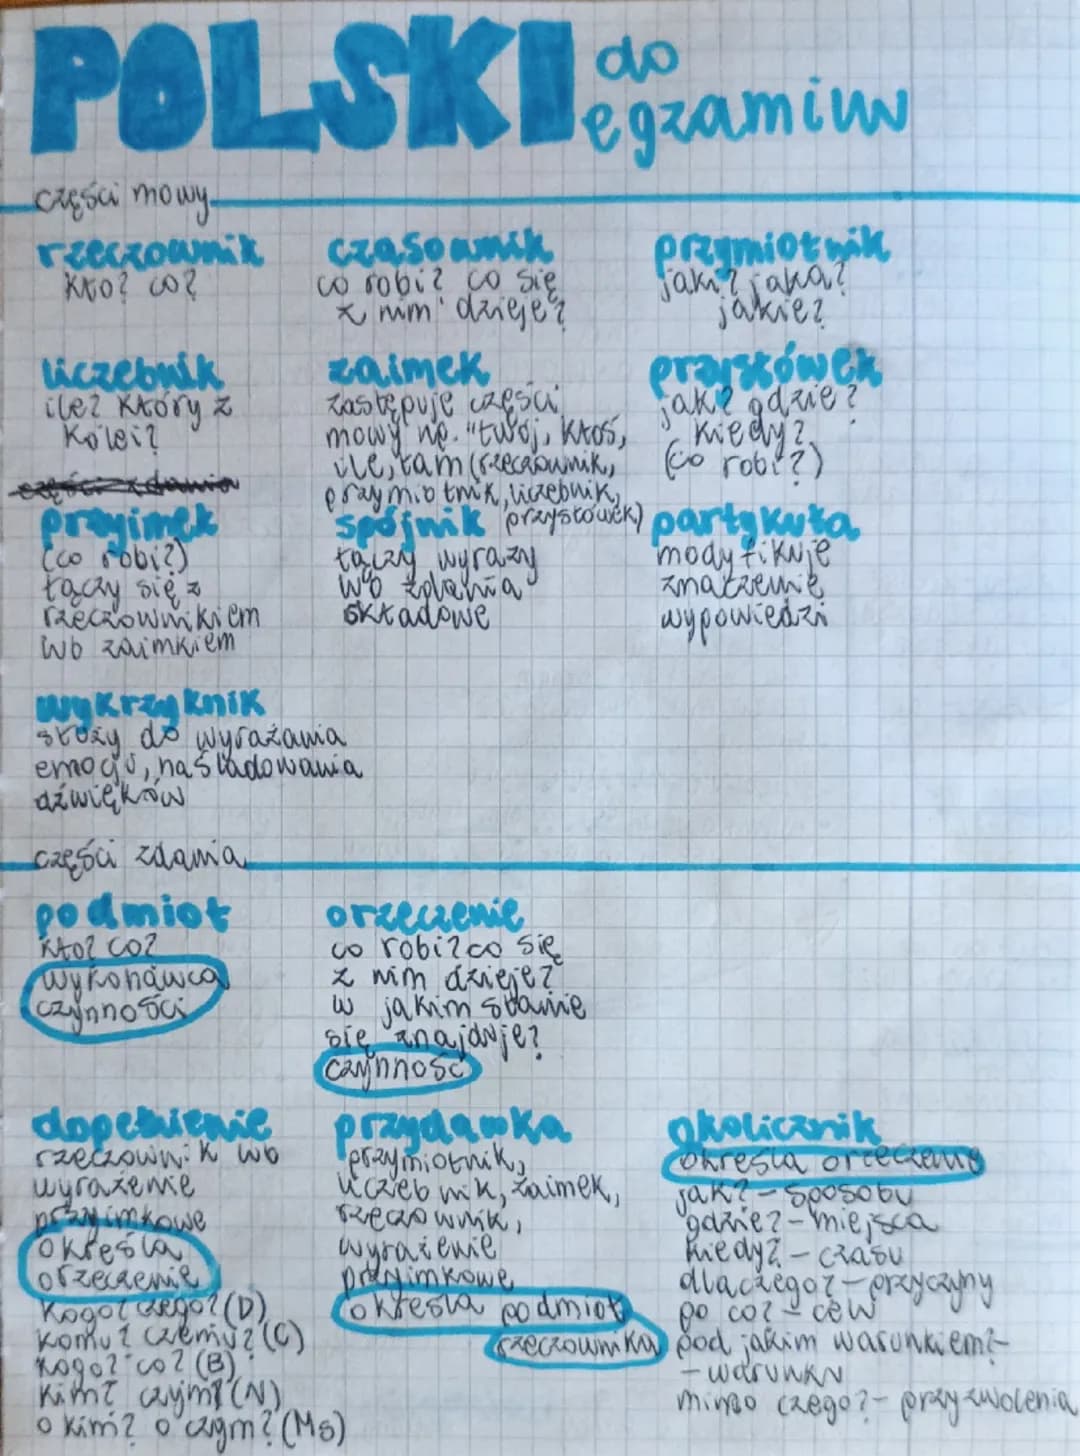 POLSKI do
egzaminu
części mowy
rzeczownik
kto? co?
czasownik
co robi? co się
z nim dzieje?
przymiotnik
jaki? jaka?
jakie?
liczebnik
ile? który z
kolei?
zaimek
zastępuje części
mowy np. "twój, ktoś,
ile, tam (rzeczownik,
przymiotnik, liczebnik,
przysłówek)
przysłówek
jak? gdzie?
kiedy?
(co robi?)
części zdania
przyimek
(co robi?)
łączy się z
rzeczownikiem
lub zaimkiem
spójnik
łączy wyrazy
lub zdania
składowe
partykuła
modyfikuje
znaczenie
wypowiedzi
wykrzyknik
służy do wyrażania
emocji, naśladowania
dźwięków
części zdania
podmiot
kto? co?
wykonawca
czynności
orzeczenie
co robi? co się
z nim dzieje?
w jakim stanie
się znajduje?
czynność
dopełnienie
rzeczownik lub
wyrażenie
przyimkowe
określa
orzeczenie
kogo? czego? (D)
komu? czemu? (C)
kogo? co? (B)
kim? czym? (N)
o kim? o czym? (Ms)
przydawka
przymiotnik,
liczebnik, zaimek,
rzeczownik,
wyrażenie
przyimkowe
określa podmiot
rzeczownika
okolicznik
określa orzeczenie
jak? - sposobu
gdzie? - miejsca
kiedy? - czasu
dlaczego? - przyczyny
po co? - celu
pod jakim warunkiem? -
- warunku
mimo czego? - przyzwolenia